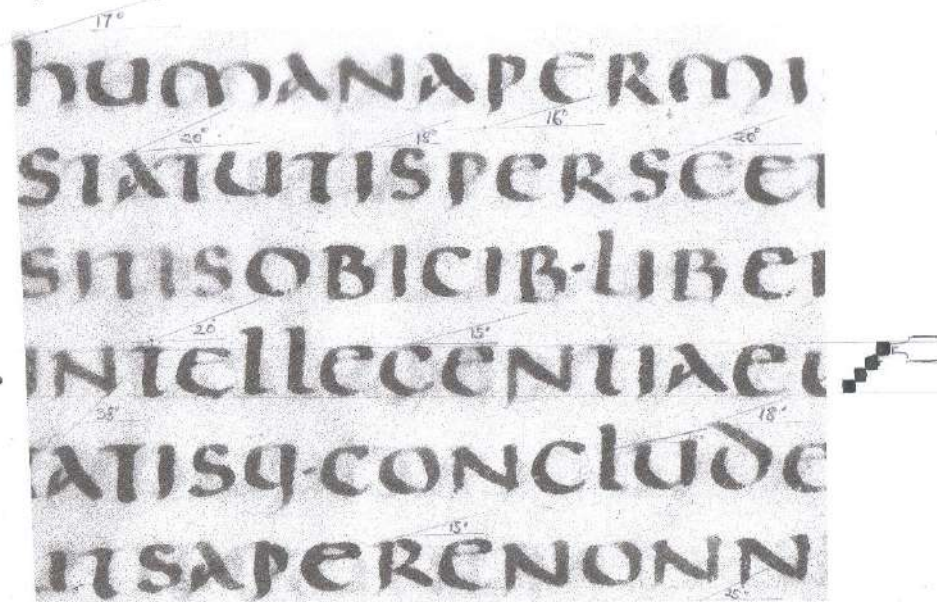 17°
humanapermi
20° 18° 16° 20°
statutispersce
sinisobicib·libe
20 15°
intellegentiaeu
38° 18°
atisq·conclude
15°
insaperenonn
25°